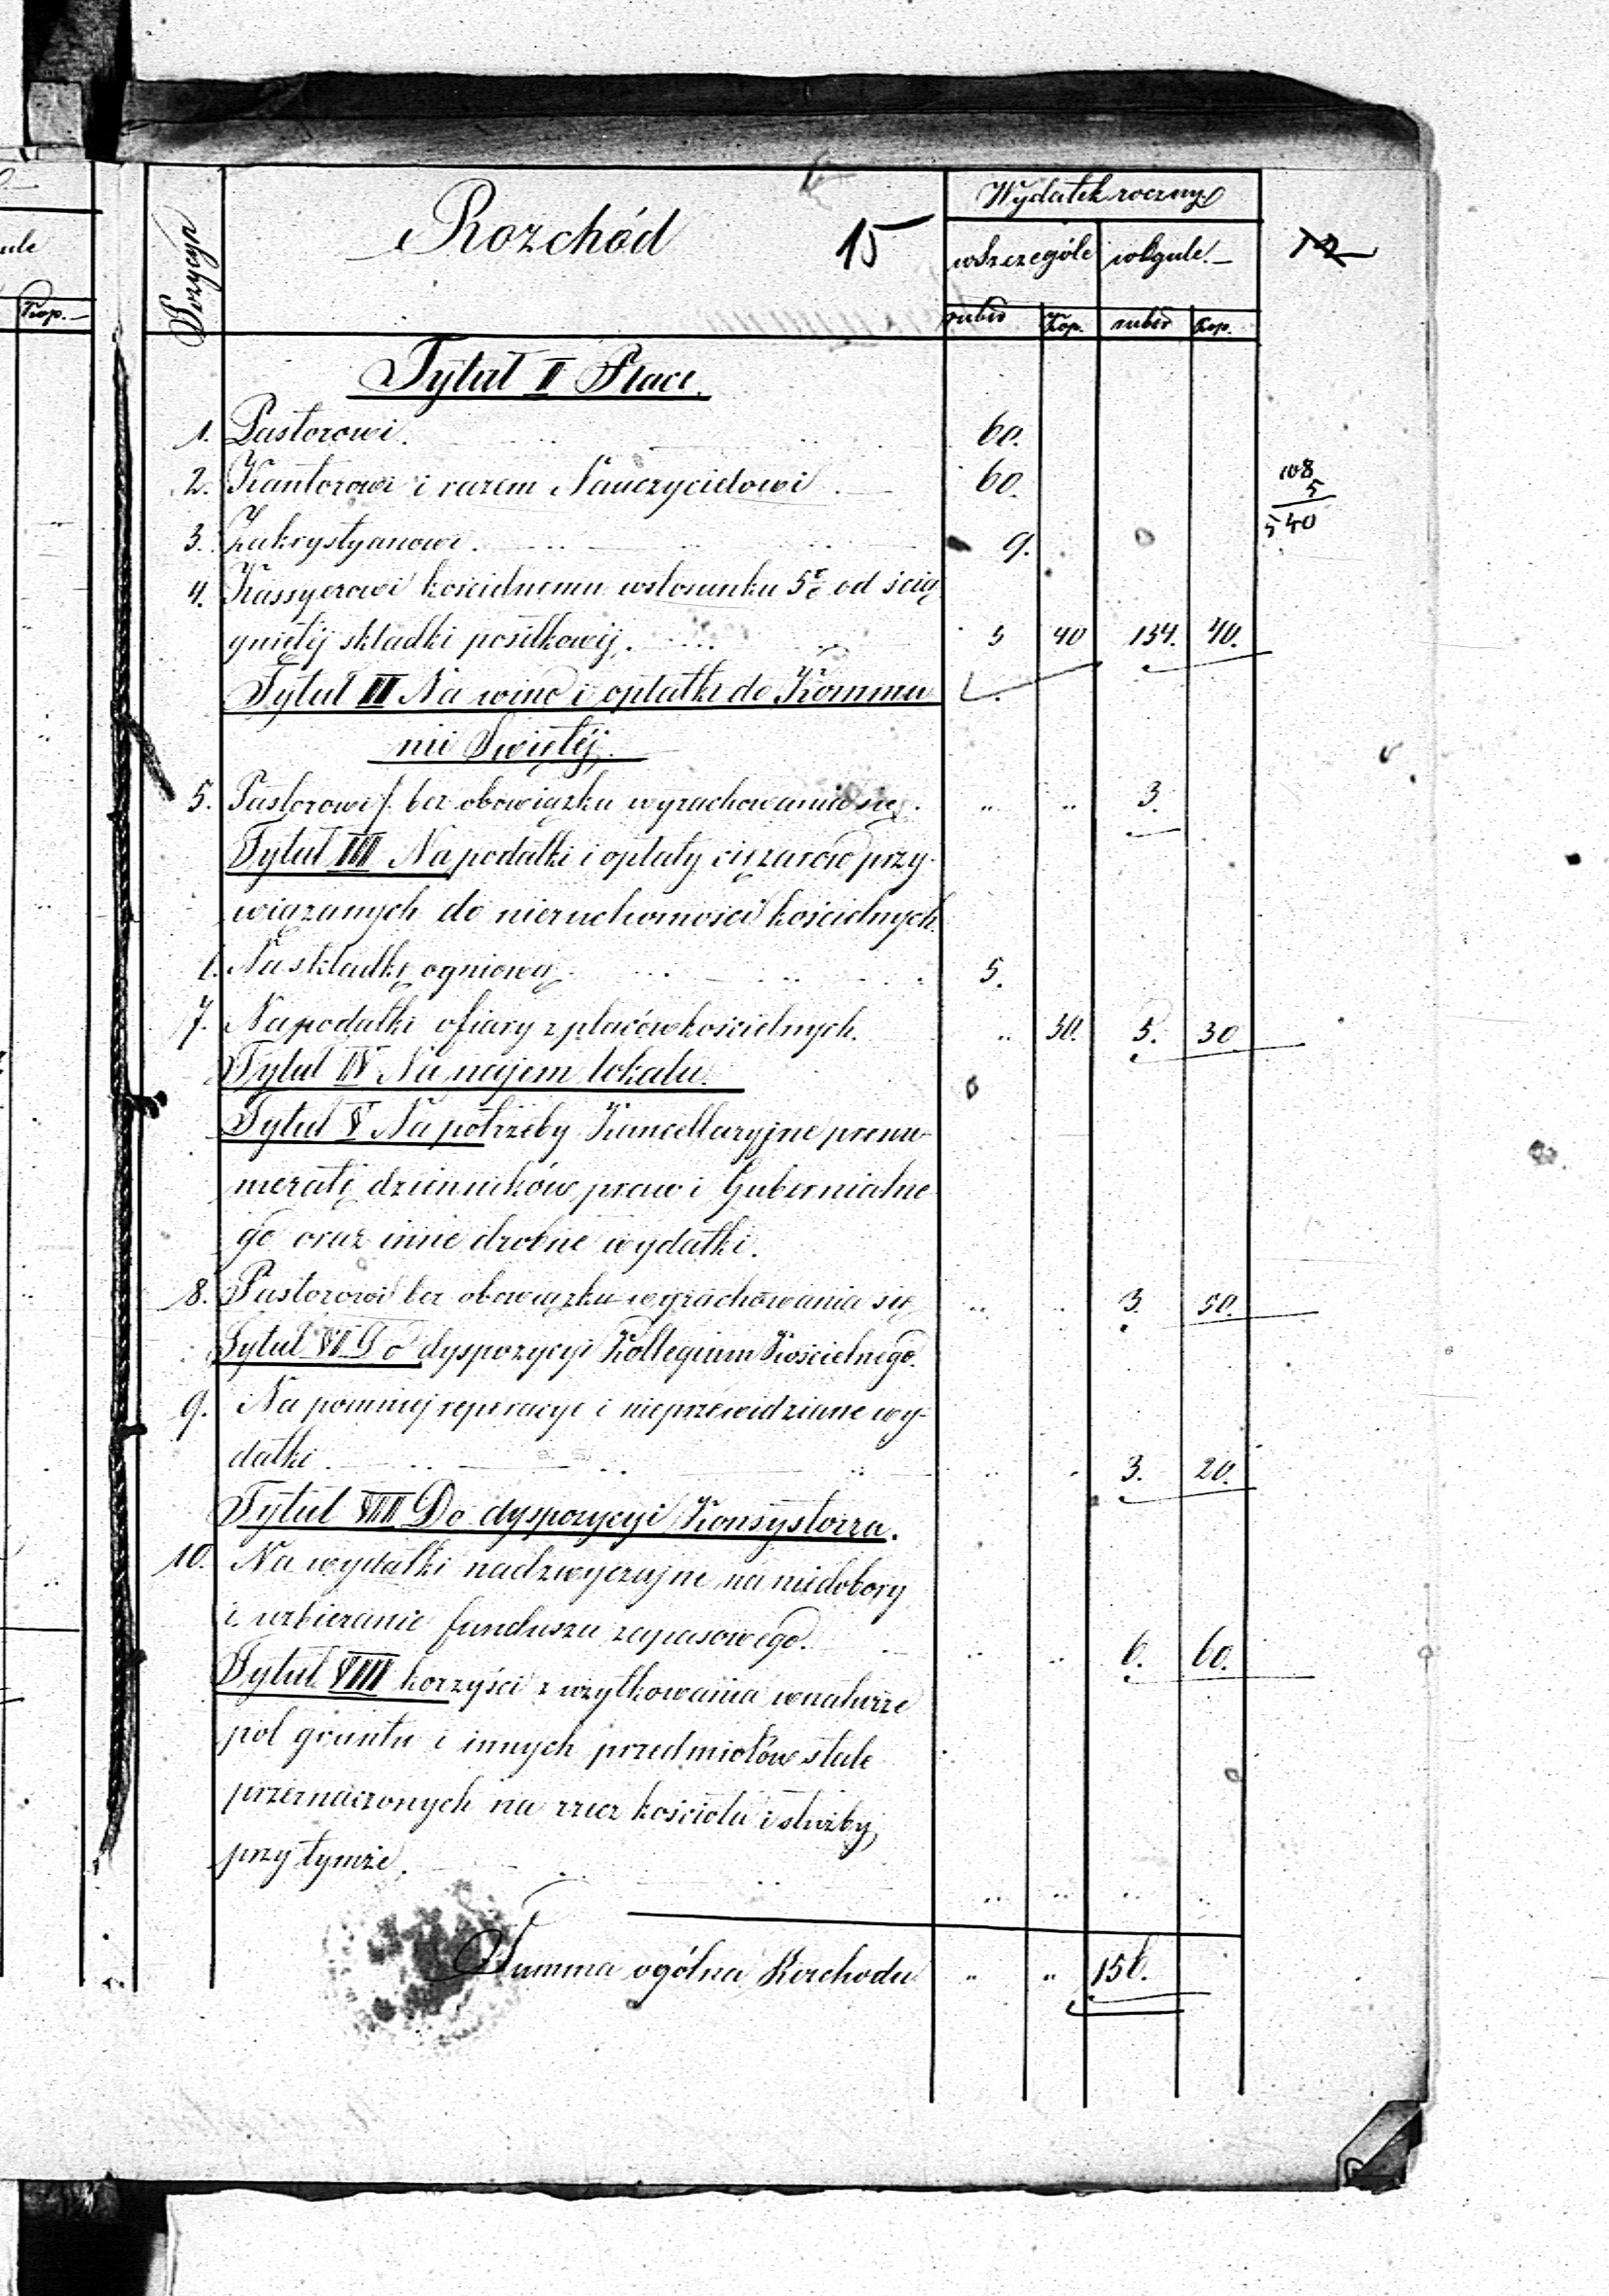 Wydatek roczny
Pozycya
Rozchód
15
12
wszczególe wogule.
rubsr Kop. rubsr Kop.
ule
Kop.
Tytuł I Płace.
1. Pastorowi. 60.
2. Kantorowi i razem Nauczycielowi 60.
108
5
540
3. Zakrystyanowi. 9.
4. Kassyerowi kościelnemu wstosunku 5% od ścią
gniętéj składki posiłkowéj. 5 40 134. 40.
Tytuł II Na wino i opłatki do Kommu
nii Świętéj.
5. Pastorowi bez obowiązku wyrachowania się. „ „ 3.
Tytuł III Na podatki i opłaty ciężarów przy-
wiązanych do nieruchomości kościelnych.
6. Na składkę ogniową. 5.
7. Na podatki ofiary z placów kościelnych. „ 30. 5. 30
Tytuł IV Na najem lokalu.
Tytuł V Na potrzeby Kancellaryjne prenu-
meratę dzienników praw i Gubernialne
go oraz inne drobne wydatki.
8. Pastorowi bez obowiązku wyrachowania się „ „ 3. 50.
Tytuł VI Do dyspozycyi Kollegium Kościelnego.
9. Na pomniej reperacye i nieprzewidziane wy-
datki. „ „ 3. 20.
Tytuł VII Do dyspozycyi Konsystorza.
10. Na wydatki nadzwyczajne, na niedobory
i uzbieranie funduszu zapasowego. „ „ 6. 60.
Tytuł VIII korzyści z użytkowania wnaturze
pol gruntu i innych przedmiotów stale
przeznaczonych na rzecz kościoła i służby
przy tymże. „ „ „ „
Summa ogólna Rozchodu „ „ 156.